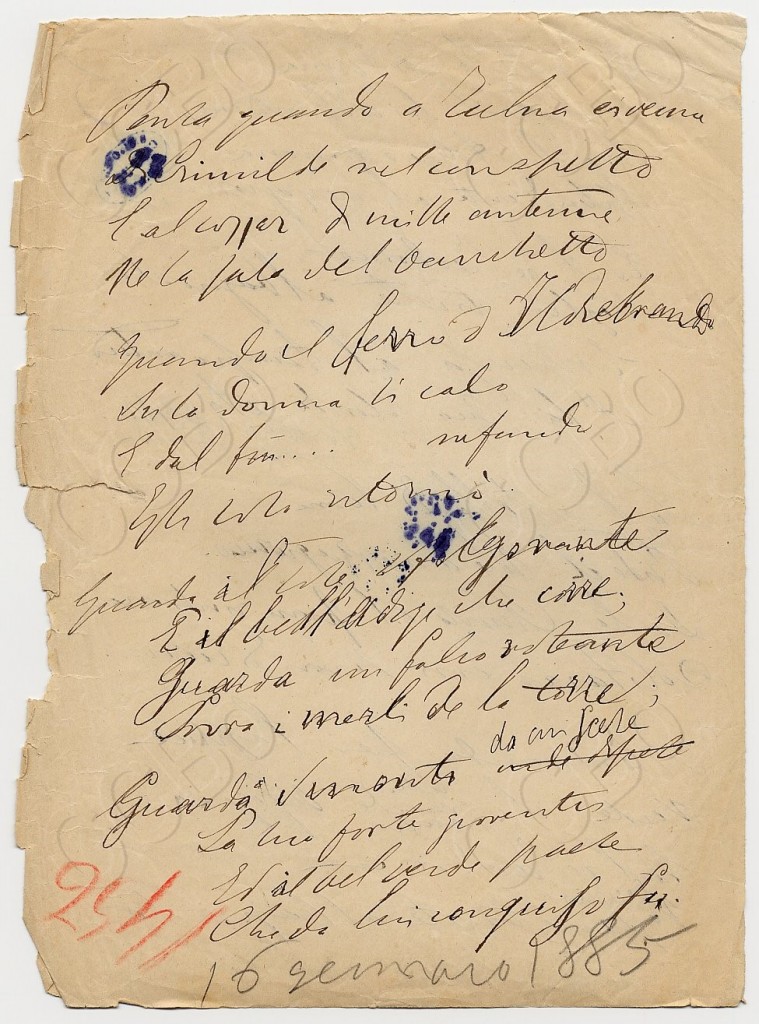 Pensa quando a Tulna ei venne
a Crimilde nel cospetto
E al cozzar di mille antenne
Ne la sala del banchetto
Quando il ferro d'Ildebrando
Su la donna si calò
E dal fun.... nefando
Egli solo ritornò.
Guarda il sole sfolgorante
E il bell'Adige che corre;
Guarda un falco roteante
Sovra i merli de la torre;
da cui scese
Guarda i monti
La sua forte gioventù
Ed il bel verde paese
Che da lui conquiso fu.
16 gennaro 1885